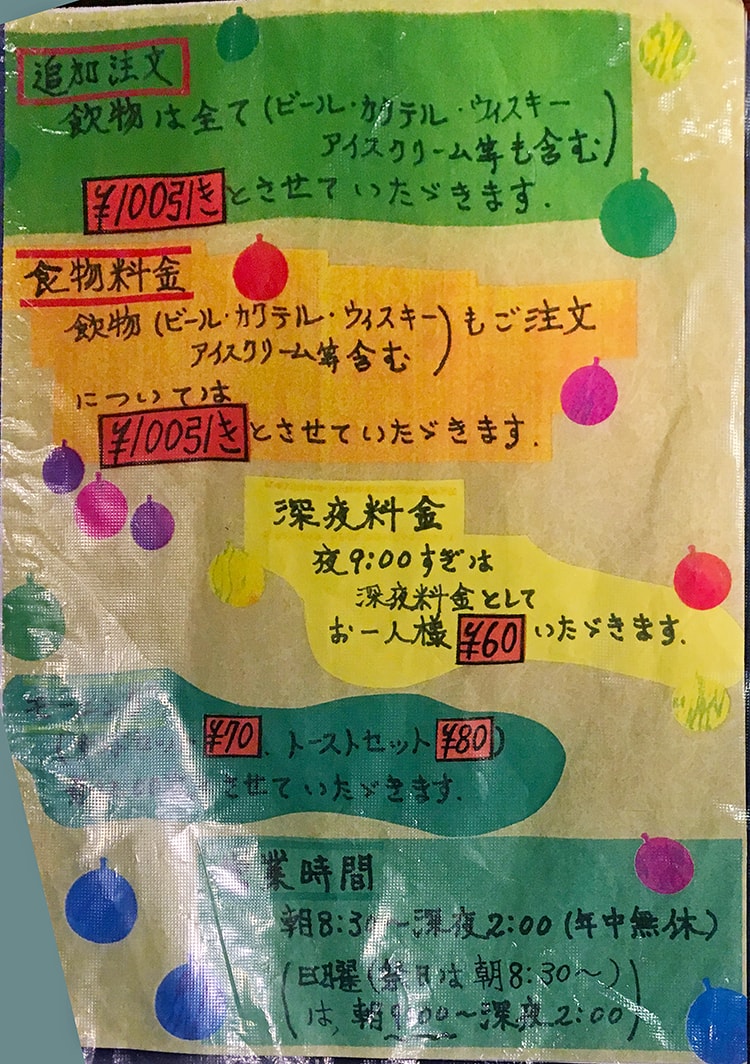 追加注文
飲物は全て(ビール・カクテル・ウィスキー
アイスクリーム等も含む)
¥100引きとさせていただきます.
食物料金
飲物(ビール・カクテル・ウィスキー)もご注文
アイスクリーム等含む
については
¥100引きとさせていただきます.
深夜料金
夜9:00すぎは
深夜料金として
お一人様 ¥60 いただきます.
¥70、トーストセット ¥80)
させていただきます.
業時間
朝8:30~深夜2:00(年中無休)
(日曜(祭日は朝8:30~)
は,朝9:00~深夜2:00)